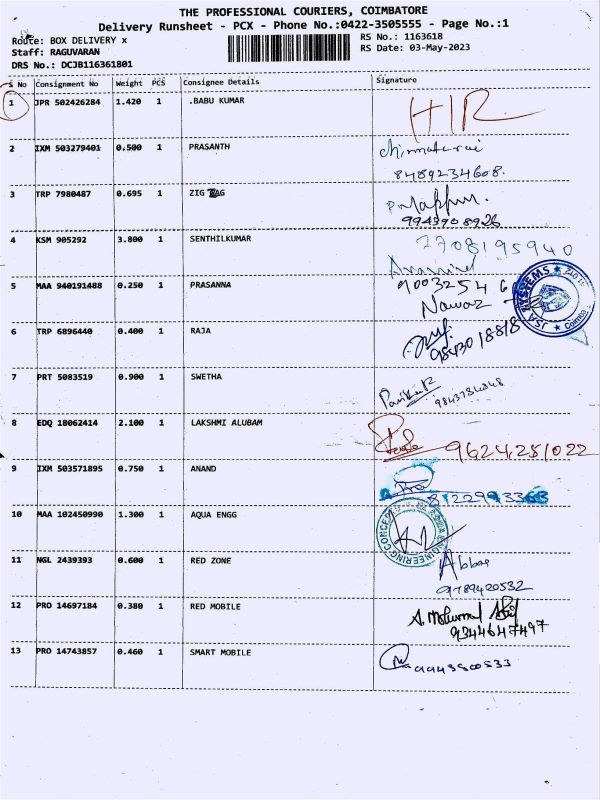 THE PROFESSIONAL COURIERS, COIMBATORE
Delivery Runsheet - PCX - Phone No.:0422-3505555 - Page No.:1
Route: BOX DELIVERY x
RS No.: 1163618
Staff: RAGUVARAN
RS Date: 03-May-2023
DRS No.: DCJB116361801
S No Consignment No Weight PCS Consignee Details Signature
1 JPR 502426284 1.420 1 .BABU KUMAR
2 IXM 503279401 0.500 1 PRASANTH
8489234608.
3 TRP 7980487 0.695 1 ZIG BAG
9943908926
4 KSM 905292 3.800 1 SENTHILKUMAR 7708195940
5 MAA 940191488 0.250 1 PRASANNA 90032546
Nawaz
JSA SYSTEMS
6 TRP 6896440 0.400 1 RAJA
9843018818
7 PRT 5083519 0.900 1 SWETHA
8 EDQ 18062414 2.100 1 LAKSHMI ALUBAM 9624251022
9 IXM 503571895 0.750 1 ANAND
8122993363
10 MAA 102450990 1.300 1 AQUA ENGG
11 NGL 2439393 0.600 1 RED ZONE Abbas
9789420532
12 PRO 14697184 0.380 1 RED MOBILE
9344647497
13 PRO 14743857 0.460 1 SMART MOBILE